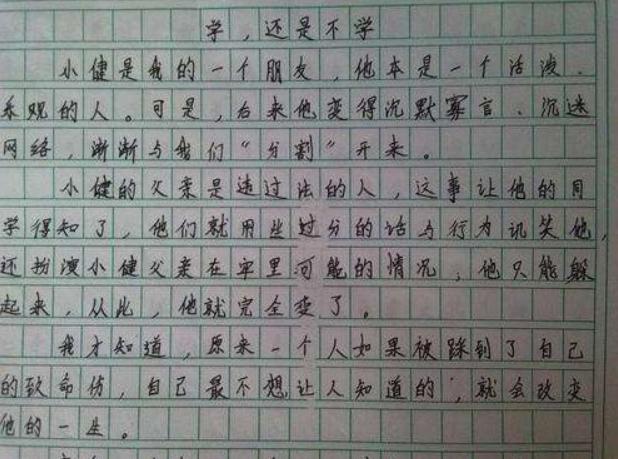 学，还是不学
小健是我的一个朋友，他本是一个活泼、
乐观的人。可是，后来他变得沉默寡言、沉迷
网络，渐渐与我们“分割”开来。
小健的父亲是违过法的人，这事让他的同
学得知了，他们就用些过分的话与行为讥笑他，
还扮演小健父亲在牢里可能的情况，他只能躲
起来，从此，他就完全变了。
我才知道，原来一个人如果被踩到了自己
的致命伤，自己最不想让人知道的，就会改变
他的一生。